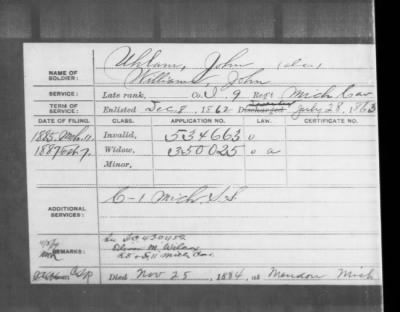 NAME OF SOLDIER: Uhlam, John (alias)
Williams John
SERVICE: Late rank, Co. I 9 Reg't Mich Cav
TERM OF SERVICE: Enlisted Dec 8, 1862 Discharged July 28, 1863
DATE OF FILING. CLASS. APPLICATION NO. LAW. CERTIFICATE NO.
1885 Mch. 11. Invalid, 534663 o
1887 Feb. 7. Widow, 350025 o a
Minor,
ADDITIONAL SERVICES: C-1 Mich S.S.
REMARKS:
M.
Died Nov 25, 1884, at Mendon Mich